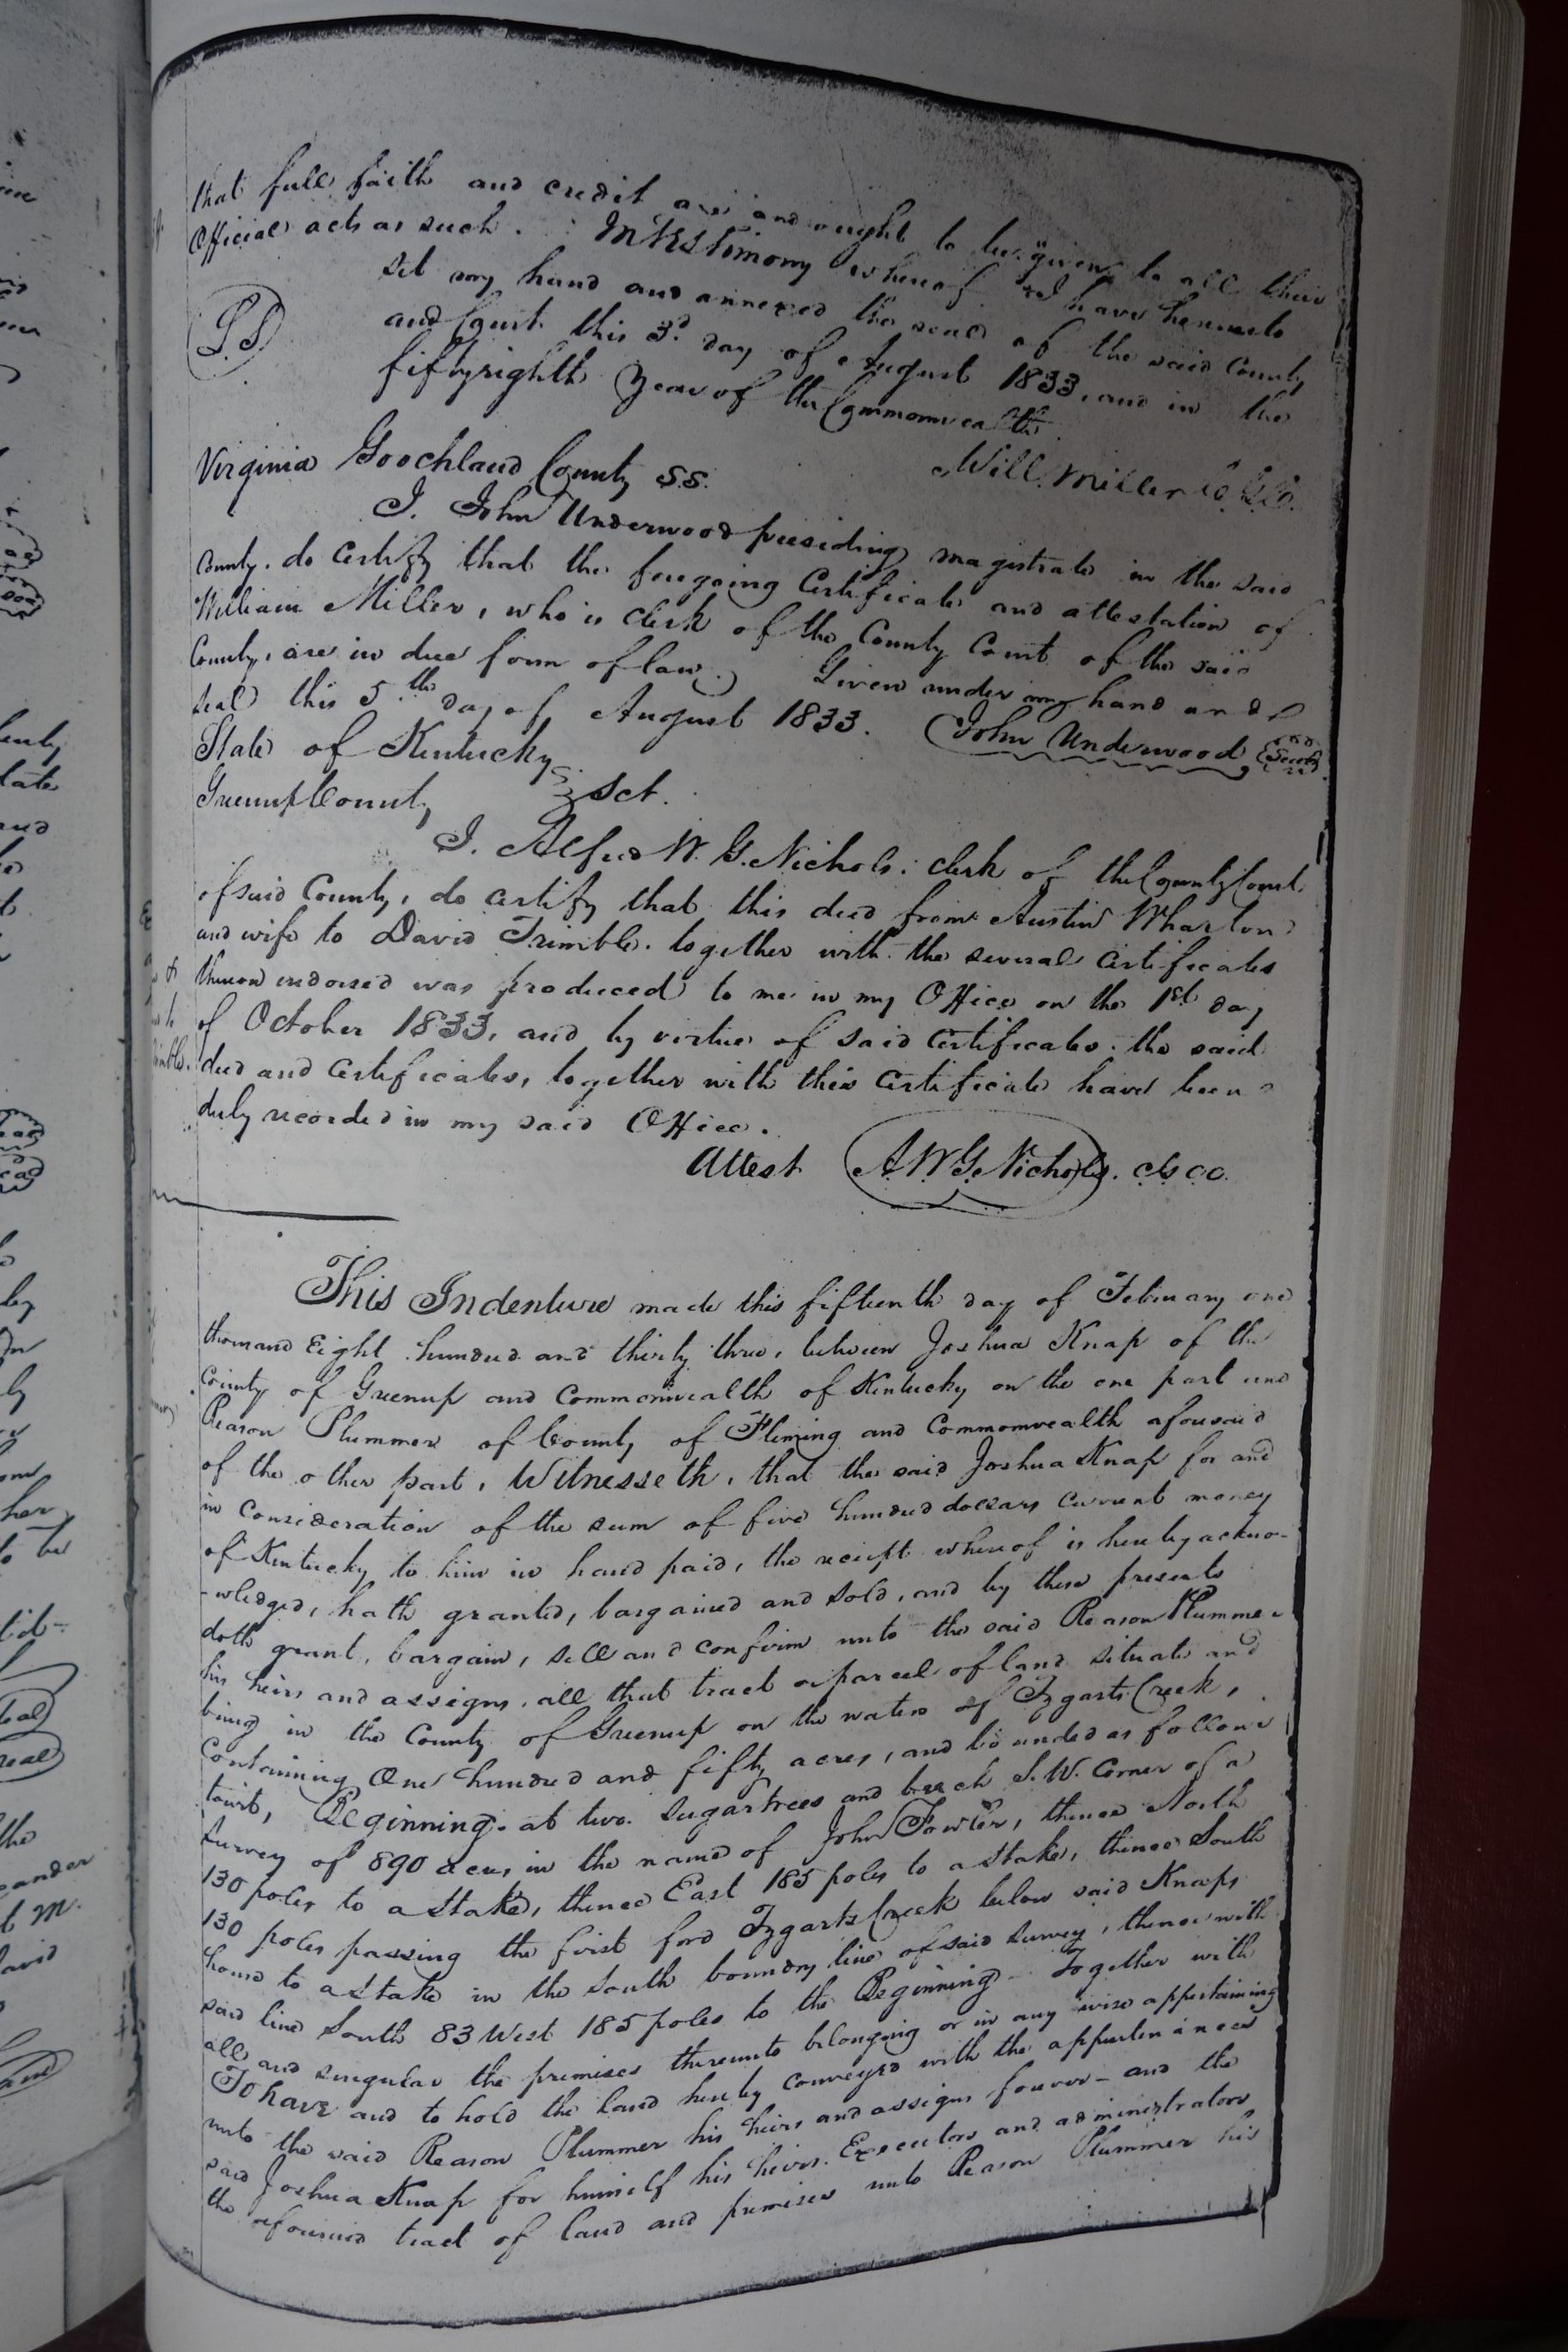 that full faith and credit are and ought to be given to all their
Official acts as such. In testimony whereof I have hereunto
set my hand and annexed the seal of the said County
L S
and Court this 3d. day of August 1833, and in the
fiftyeighth Year of the Commonwealth
Will. Miller
Virginia Goochland County SS.
I. John Underwood presiding magistrate in the said
County. do certify that the foregoing Certificate and attestation of
William Miller, who is clerk of the County Court of the said
County, are in due form of law. Given under my hand and
seal this 5.th day of August 1833. John Underwood Seal
State of Kentucky
Greenup County Sct.
I. Alfred W. G. Nichols. clerk of the County Court
of said County, do certify that this deed from Austin Wharton
and wife to David Trimble. together with the several certificates
thereon endorsed was produced to me in my Office on the 1st day
of October 1833, and by virtue of said certificates. the said
deed and certificates, together with this certificate have been
duly recorded in my said Office.
Attest A. W. G. Nichols.
This Indenture made this fifteenth day of February one
thousand Eight hundred and thirty three, between Joshua Knap of the
County of Greenup and Commonwealth of Kentucky on the one part and
Reason Plummer of County of Fleming and Commonwealth aforesaid
of the other part, Witnesseth, that the said Joshua Knap for and
in consideration of the sum of five hundred dollars current money
of Kentucky to him in hand paid, the reciept whereof is hereby ackno-
-wledged, hath granted, bargained and sold, and by these presents
doth grant, bargain, sell and confirm unto the said Reason Plummer
his heirs and assigns, all that tract or parcel of land situate and
being in the County of Greenup on the waters of Tygarts Creek,
Containing One hundred and fifty acres, and bounded as follows
towit, Beginning at two sugartrees and beech S.W. Corner of a
survey of 890 acres, in the name of John Fowler, thence North
130 poles to a stake, thence East 185 poles to a stake, thence South
130 poles passing the first ford Tygarts Creek below said Knaps
house to a stake in the south boundry line of said survey, thence with
said line South 83 West 185 poles to the Beginning - Together with
all and singular the premises thereunto belonging or in any wise appertaining
To have and to hold the land hereby conveyed with the appurtenances
unto the said Reason Plummer his heirs and assigns forever - and the
said Joshua Knap for himself his heirs. Executors and administrators
the aforesaid tract of land and premises unto Reason Plummer his